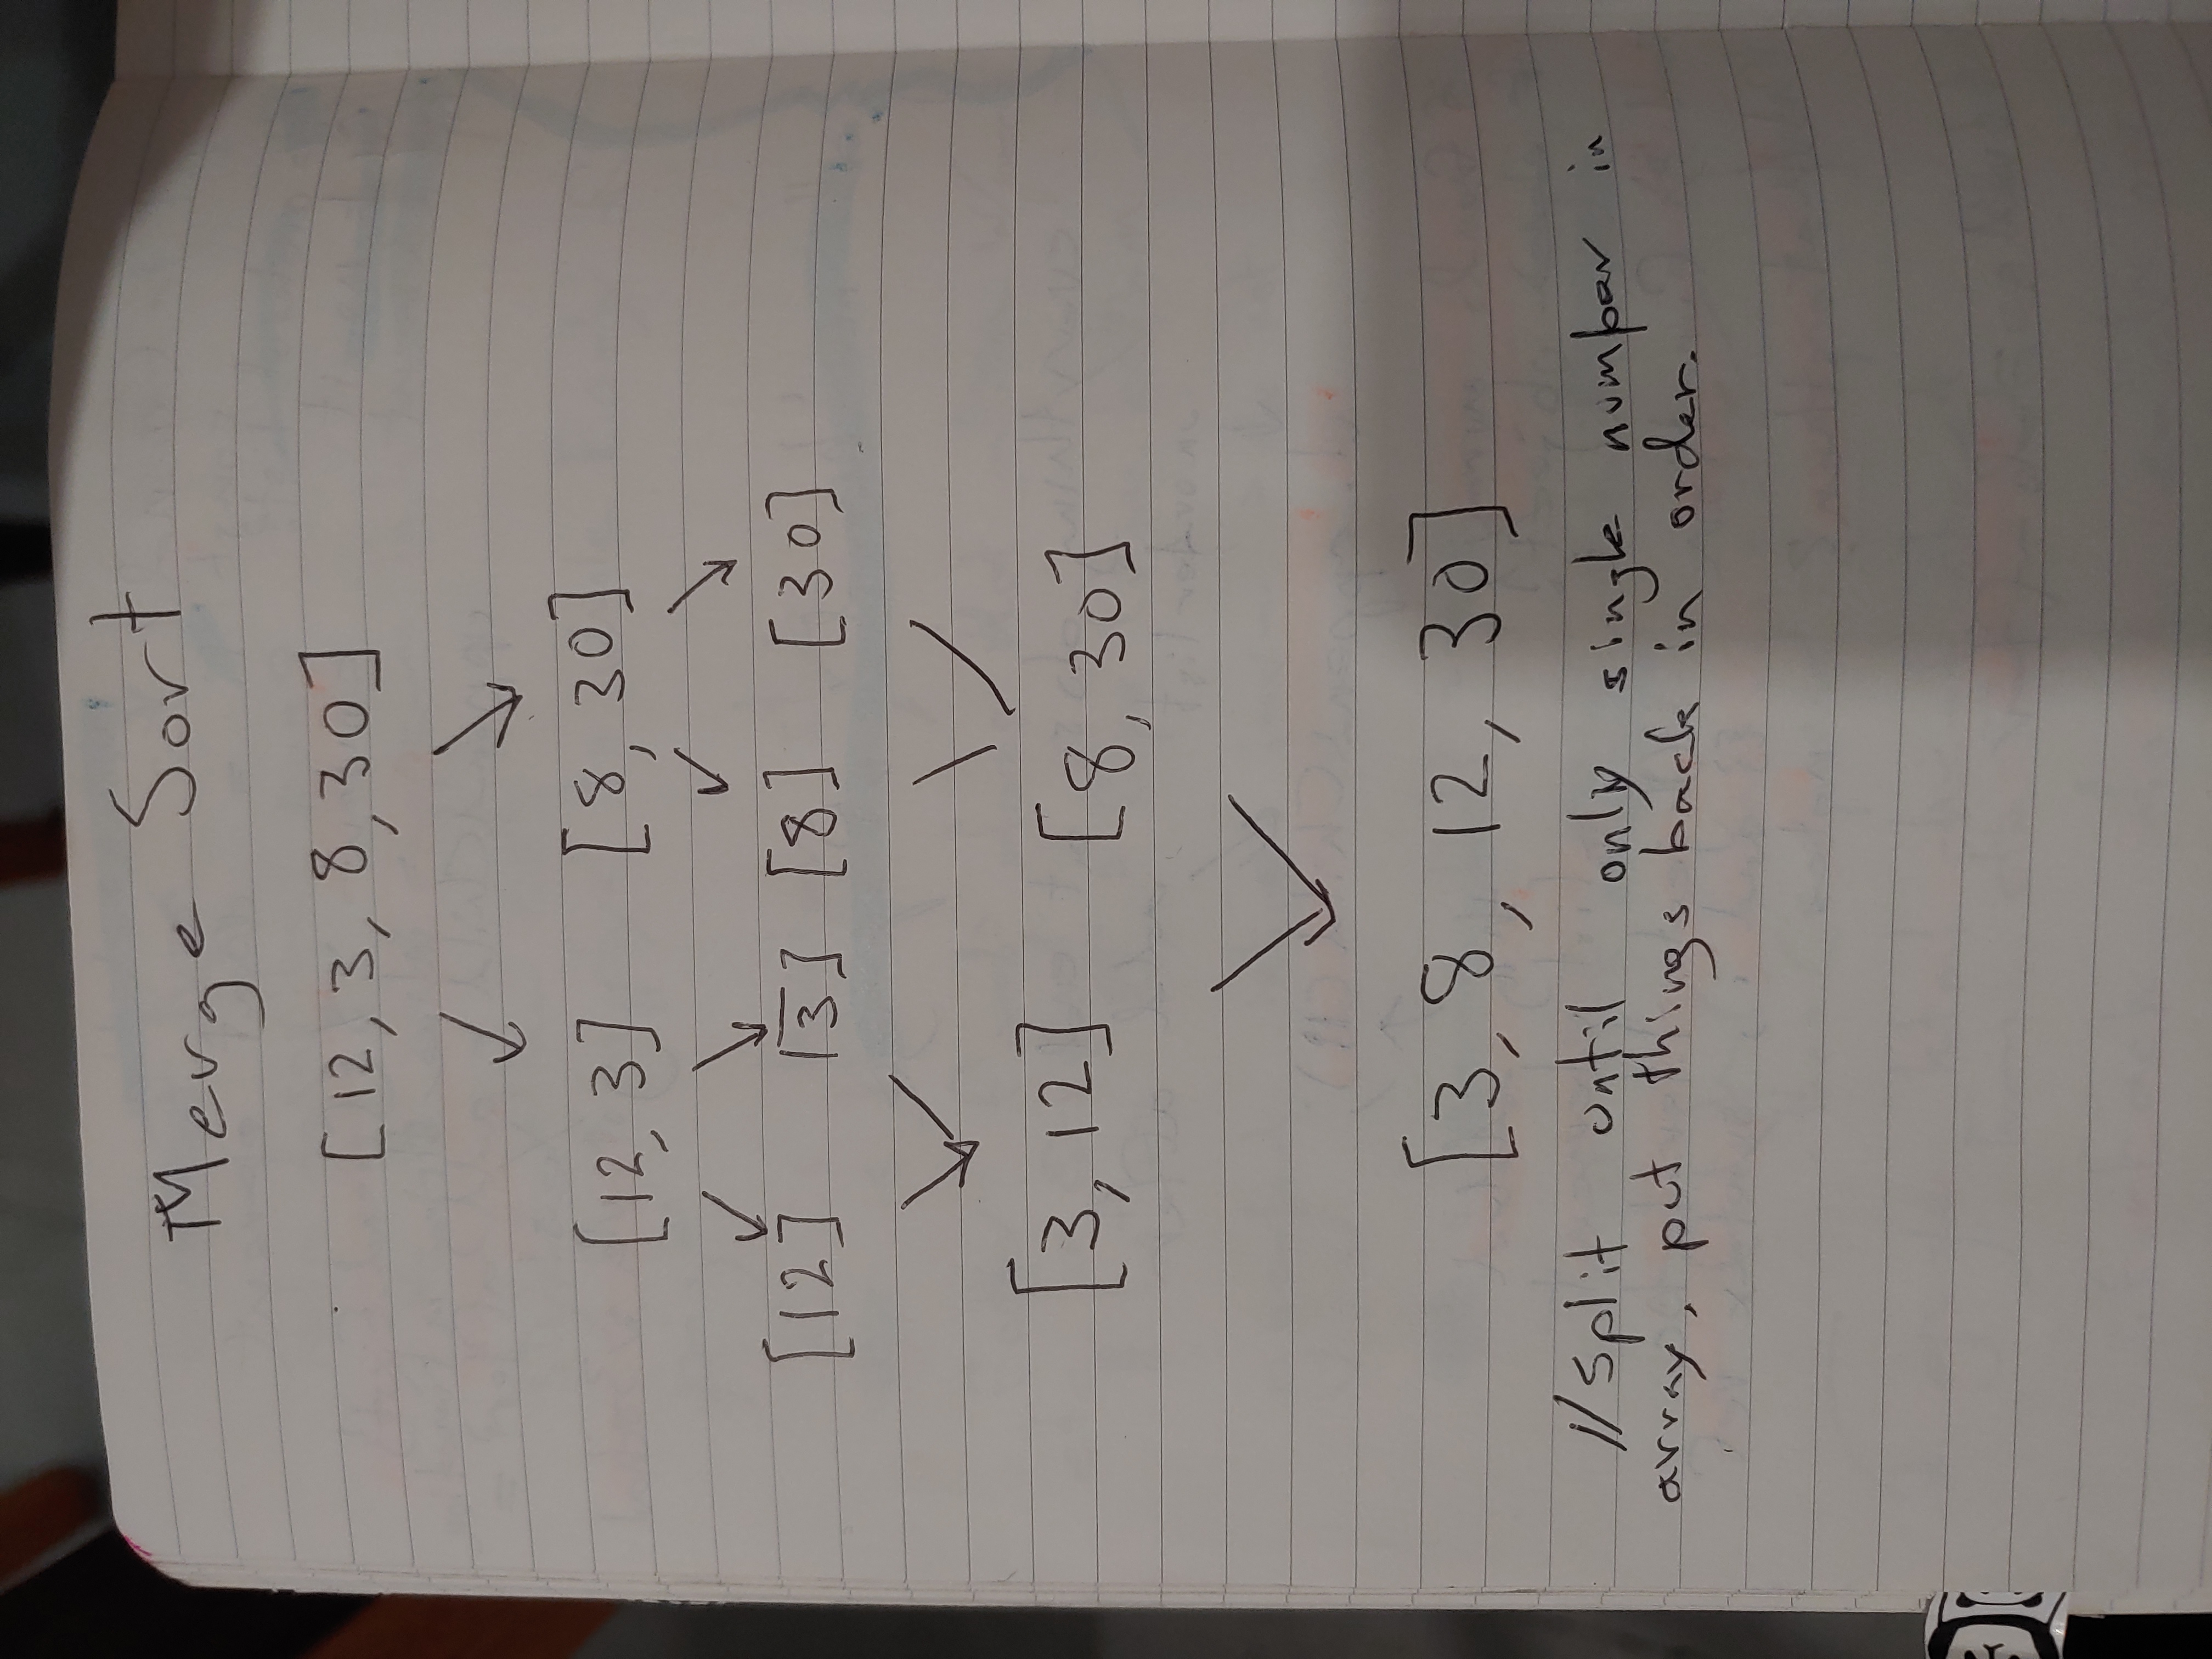 Merge Sort
[12, 3, 8, 30]
[12, 3] [8, 30]
[12] [3] [8] [30]
[3, 12] [8, 30]
[3, 8, 12, 30]
// Split until only single number in
array, put things back in order.